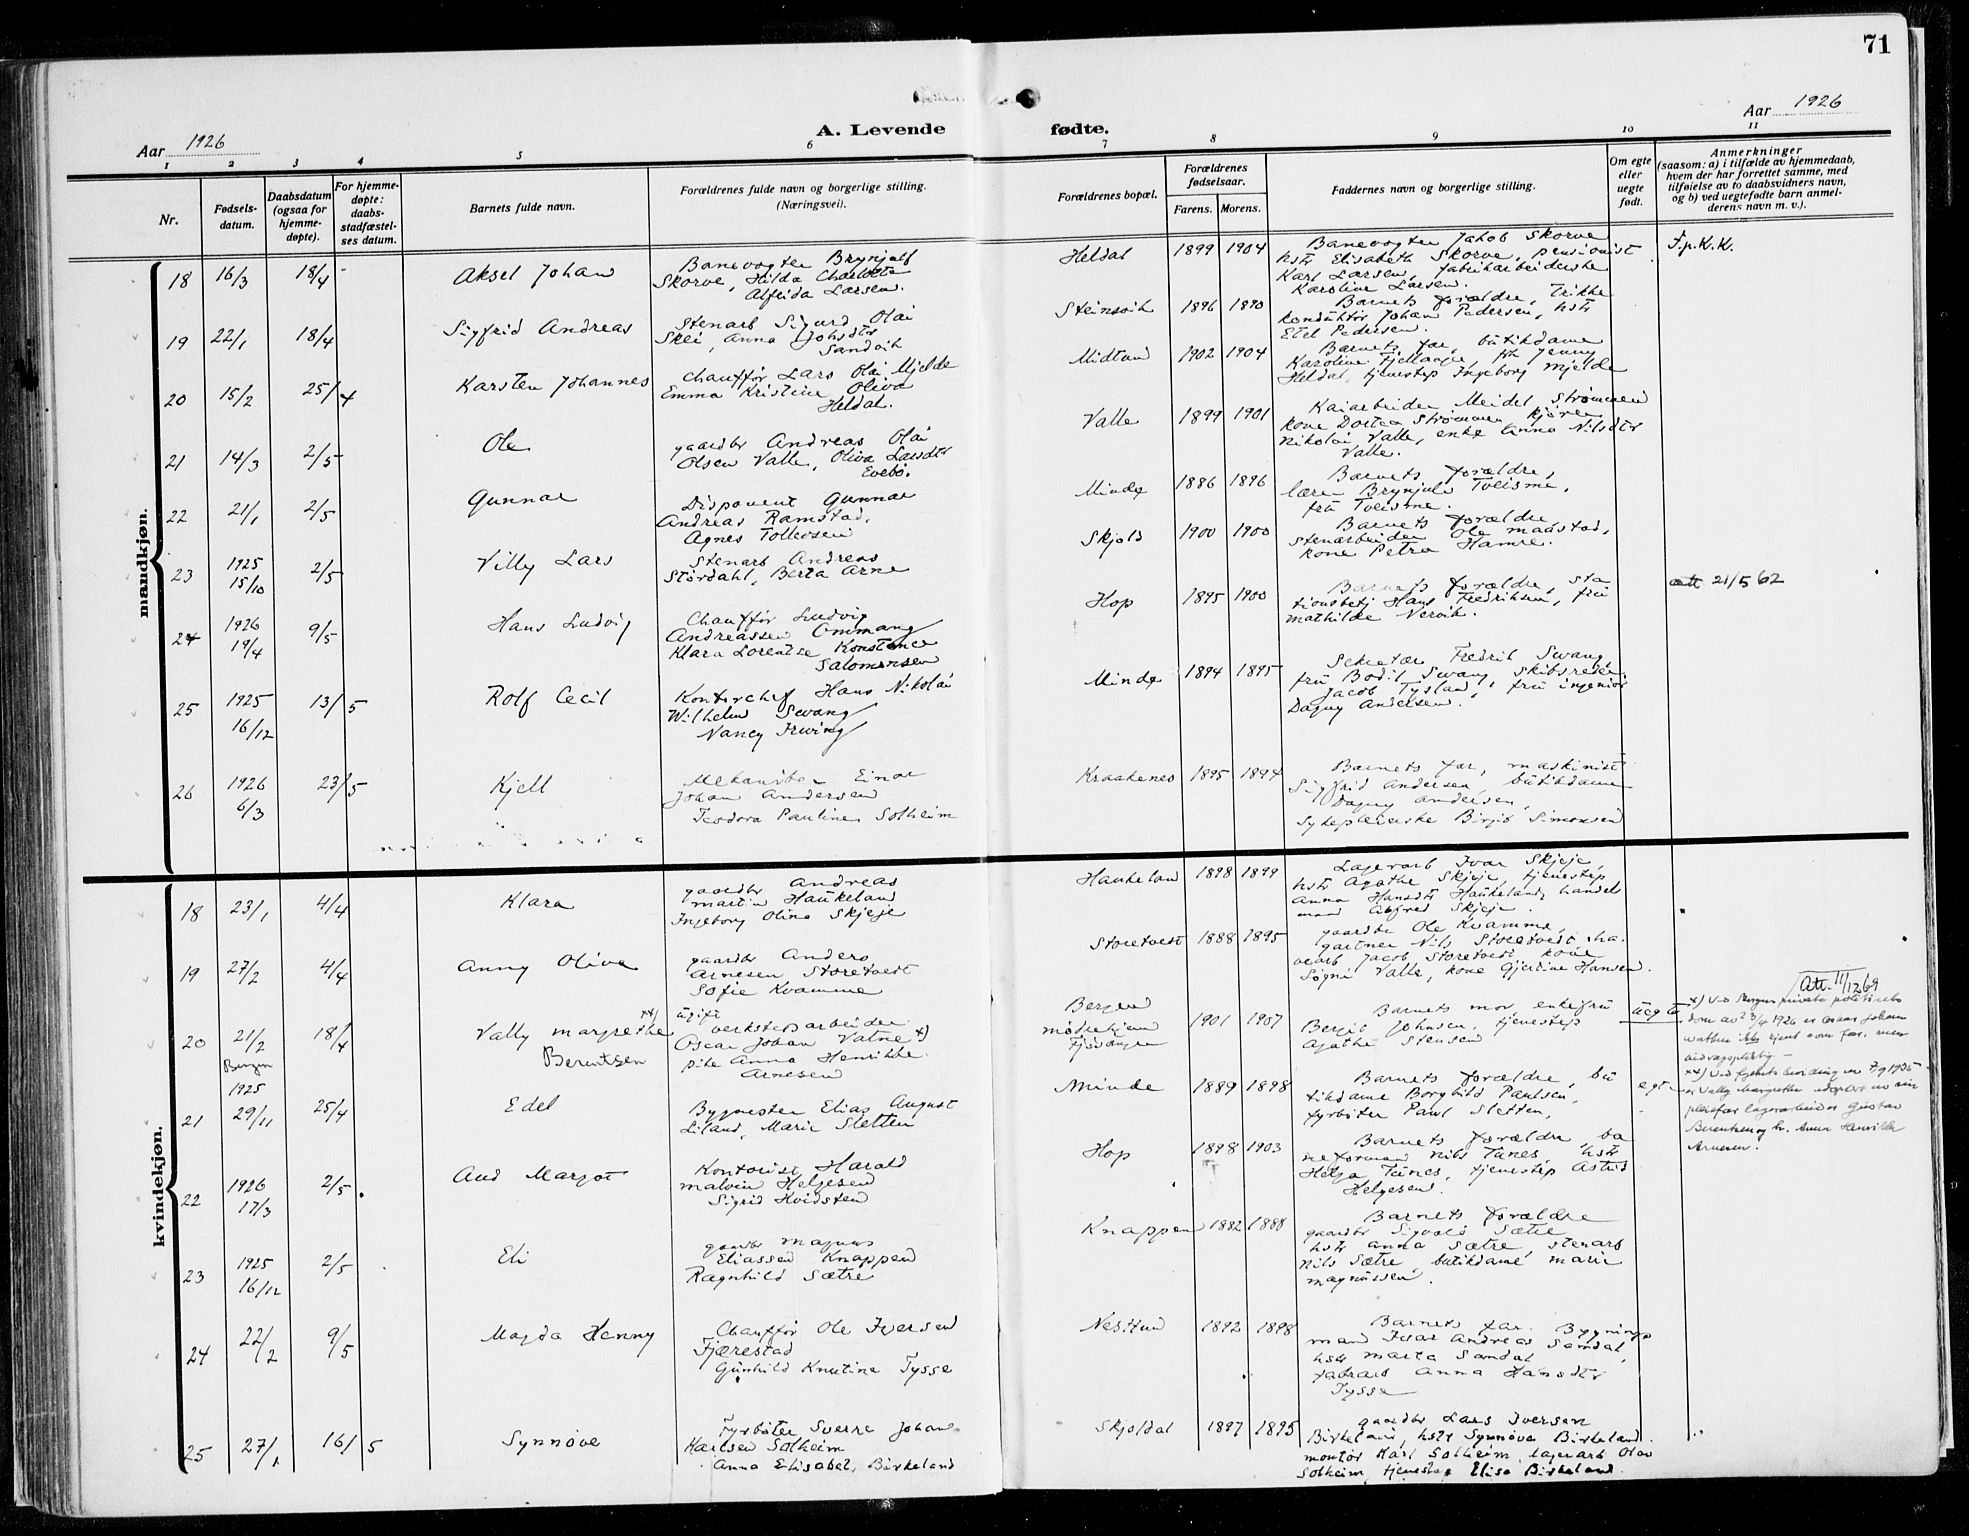 71
Aar 1926
A. Levende fødte.
Aar 1926
1 2 3 4 5 6 7 8 9 10 11
Nr.
Fødsels-
datum.
Daabsdatum
(ogsaa for
hjemme-
døpte).
For hjemme-
døpte:
daabs-
stadfæstel-
ses datum.
Barnets fulde navn.
Forældrenes fulde navn og borgerlige stilling.
(Næringsvei).
Forældrenes bopæl.
Forældrenes
fødselsaar.
Farens. Morens.
Faddernes navn og borgerlige stilling.
Om egte
eller
uegte
født.
Anmerkninger
(saasom: a) i tilfælde av hjemmedaab,
hvem der har forrettet samme, med
tilføielse av to daabsvidners navn,
og b) ved uegtefødte barn anmel-
derens navn m. v.).
mandkjøn.
18 16/3 18/4 Aksel Johan
Banevogter Brynjulf
Skorve, Hilda Charlotta
Alfrida Larsen.
Heldal 1899 1904
Banevogter Jakob Skorve
hstr Elisabeth Skorve, pensionist
Karl Larsen, fabrikarbeiderske
Karoline Larsen.
F.p.K.K.
19 22/1 18/4 Sigfrid Andreas
Stenarb Sigurd Olai
Skei, Anna Johsdtr
Sandvik
Steinsvik 1896 1890
Barnets forældre, trikke
konduktør Johan Pedersen, hstr
Etel Pedersen.
20 15/2 25/4 Karsten Johannes
Chauffør Lars Olai Mjelde
Emma Kristine Oliva
Heldal.
Midtun 1902 1904
Barnets far, butikdame
Karoline Fjellanger, frk Jenny
Heldal, tjenestep Ingeborg Mjelde
21 14/3 2/5 Ole
gaardbr Andreas Olai
Olsen Valle, Oliva Larsdtr
Evebø.
Valle 1899 1901
Kaiarbeider Meidel Strømmen
kone Dortea Strømmen kjører
Nikolai Valle, enke Anna Nilsdtr
Valle.
22 21/1 2/5 Gunnar
Disponent Gunnar
Andreas Ramstad,
Agnes Tollevsen
Minde 1886 1896
Barnets forældre,
lærer Brynjulf Tveisme,
fru Tveisme.
23 1925
15/10 2/5 Villy Lars
Stenarb Andreas
Størdahl, Berta Arne
Skjold 1900 1900
Barnets forældre
stenarbeider Ole Madstad,
kone Petra Hamre.
24 1926
19/4 9/5 Hans Ludvig
Chauffør Ludvig
Andreassen Ommang
Klara Lorentse Konstance
Salomonsen
Hop 1895 1900
Barnets forældre, sta
tionsbetj Hans Fredriksen, fru
Mathilde Nervik.
att. 21/5 62
25 1925
16/12 13/5 Rolf Cecil
Kontorchef Hans Nikolai
Wilhelm Swang
Nancy Irwing
Minde 1894 1895
Sekretær Fredrik Swang,
fru Bodil Swang, skibsreder
Jacob Tysland, fru ingeniør
Dagny Andersen.
26 1926
6/3 23/5 Kjell
Mekaniker Einar
Johan Andersen
Teodora Pauline Solheim
Kraakenes 1895 1894
Barnets far, maskinist
Sigfrid Andersen, butikdame
Dagny Andersen,
Sykepleierske Birgit Simonsen
kvindekjøn.
18 23/1 4/4 Klara
gaardbr Andreas
Martin Haukeland
Ingeborg Olina Skjeje
Haukeland 1898 1899
Lagerarb Ivar Skjeje,
hstr Agathe Skjeje, tjenestep
Anna Hansdtr Haukeland, handels
mand Alfred Skjeje.
19 27/2 4/4 Anny Oliva
gaardbr Anders
Arnesen Storetvedt
Sofie Kvamme
Storetvedt 1888 1895
gaardbr Ole Kvamme,
gartner Nils Storetvedt, ha.
vearb Jacob Storetvedt, kone
Søgni Valle, kone Gjertine Hansen.
20 21/2
Bergen 18/4 Vally Margrethe xx)
Berentsen
ugift
verkstedsarbeider
Oscar Johan Vatne x)
pike Anna Henrikke
Arnesen
Bergen
mødrehjem
Fjøsanger
1901 1907
Barnets mor, enkefru
Bergit Johnsen, tjenestep
Agathe Stensen
uegte
Att. 11/12 69
x) Ved Bergens private politirets
dom av 23/4 1926 er Oskar Johan
Wathne ikke kjent som far, men
bidragspligtig.—
xx) Ved fylkets bevilling av 7/9 1935
er Vally Margrethe adoptert av sin
pleiefar lagerarbeider Gustav
Berentsen og hr. Anna Henrikke
Arnesen.
21 1925
29/11 25/4 Edel
Bygmester Elias August
Liland, Marie Sletten
Minde 1889 1898
Barnets forældre, bu
tikdame Borghild Paulsen,
fyrbøter Paul Sletten,
egte
22 1926
17/3 2/5 Aud Margot
Kontorist Harald
Malvin Helgesen
Sigrid Hvidsten
Hop 1898 1903
Barnets forældre, ba
neformand Nils Tunes, hstr
Helga Tunes, tjenestep Astrid
Helgesen.
23 1925
16/12 2/5 Eli
gaardbr Magnus
Eliassen Knappen
Ragnhild Sætre
Knappen 1882 1888
Barnets forældre
gaardbr Sigvald Sætre
hstr Anna Sætre, stenarb
Nils Sætre, butikdame Marie
Magnussen.
24 22/2 9/5 Magda Henny
Chauffør Ole Iversen
Fjærestad
Gunhild Knutine Tysse
Nesttun 1892 1898
Barnets far. Bygnings
mand Ivar Andreas Samdal,
hstr Marta Samdal,
fabrarb Anna Hansdtr
Tysse
25 27/1 16/5 Synnøve
Fyrbøter Sverre Johan
Karlsen Solheim
Anna Elisabet, Birkeland
Skjoldal 1897 1895
gaardbr Lars Iversen
Birkeland, hstr Synnøva Birkeland.
montør Karl Solheim, lagerarb Olav
Solheim, tjenestep Elisa Birkeland.